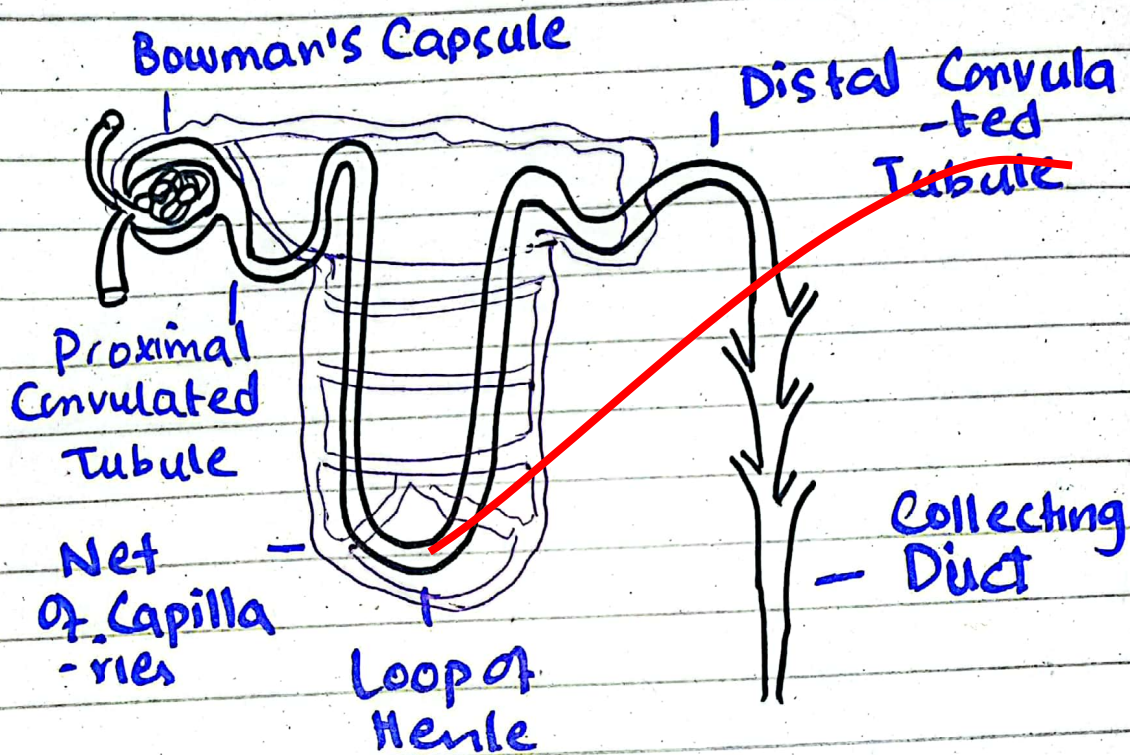 Bowman's Capsule
Distal Convula
-ted
Tubule
Proximal
Convulated
Tubule
Net
of Capilla
-ries
Loop of
Henle
Collecting
Duct